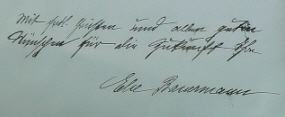 Mit frdl. Grüßen und allen guten
Wünschen für die Zukunft Ihre
Else